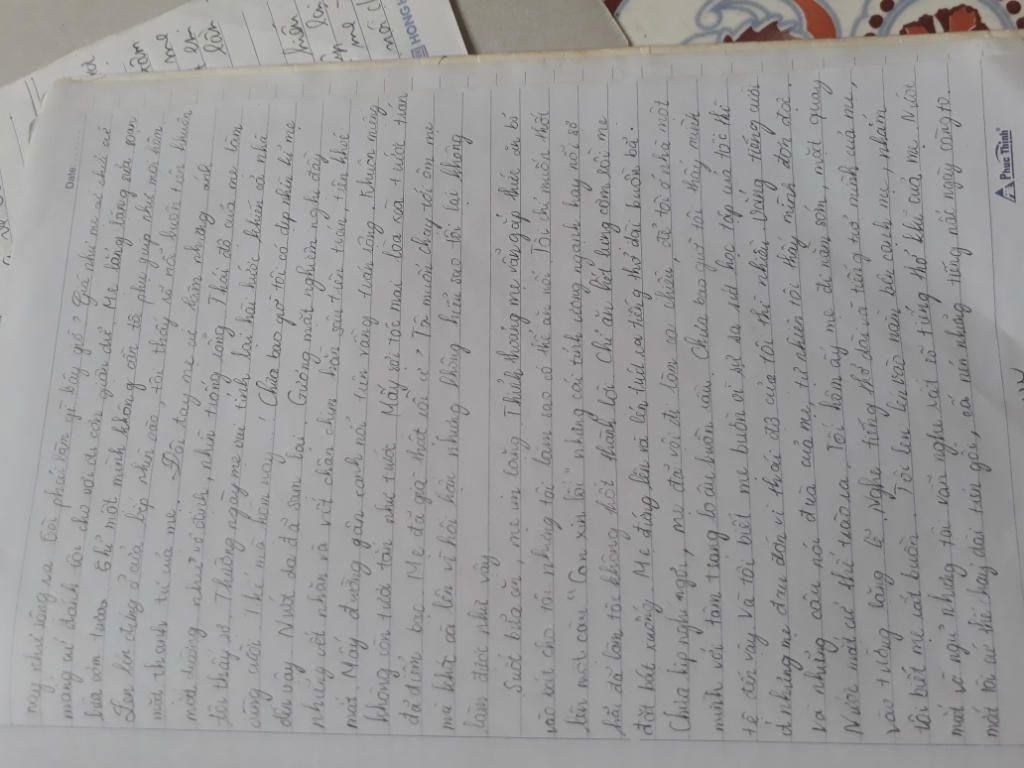 Date:
này như rằng ra tôi phải làm gì bây giờ? Giá như mẹ cứ chửi cứ
mắng cứ đánh tôi cho vơi đi cơn giận dữ. Mẹ lẳng lặng sửa soạn
bữa cơm trưa. Chỉ một mình không cần tôi phụ giúp như mọi hôm
Lén lén đứng ở cửa bếp nhìn vào, tôi thấy sợ mỗi bước trên khuôn
mặt thanh tú của mẹ. Đôi tay mẹ vẫn làm nhưng ánh
mắt dường như vô định, nhìn trống rỗng. Thái độ của mẹ làm
tôi thấy sợ. Thường ngày mẹ vui tính lại hài hước khiến cả nhà
cũng cười thế mà hôm nay! Chưa bao giờ tôi có dịp nhìn kĩ mẹ
đến vậy. Nước da đã sạm lại. Gương mặt nghiêm nghị đầy
những vết nhăn và vết chân chim hằn sâu trên trán, trên khóe
mắt. Mấy đường gân xanh nổi trên vầng trán rộng. Khuôn miệng
không còn tươi tắn như trước. Mấy sợi tóc mai lòa xòa trước trán
đã đốm bạc. Mẹ đã già thật rồi ư, Tôi muốn chạy tới ôm mẹ
mà khóc òa lên vì hối hận nhưng không hiểu sao tôi lại không
làm được như vậy
Suốt bữa ăn, mẹ im lặng. Thỉnh thoảng mẹ vẫn gắp thức ăn bỏ
vào bát cho tôi nhưng tôi làm sao có thể ăn nổi. Tôi chỉ muốn thốt
lên một câu "Con xin lỗi" nhưng cái tính ương ngạnh hay nỗi sợ
hãi đã làm tôi không thốt thành lời. Chỉ ăn hết lưng cơm rồi mẹ
đặt bát xuống. Mẹ đứng lên và lên tiếng thở dài buồn bã.
Chưa kịp nghỉ ngơi, mẹ đã vội đi làm ca chiều, để tôi ở nhà một
mình với tâm trạng lo âu buồn rầu. Chưa bao giờ tôi thấy mình
tệ đến vậy Và tôi biết mẹ buồn vì sự sa sút học tập của tôi thì ít
nhưng mẹ đau đớn vì thái độ của tôi thì nhiều. Vắng tiếng cười
và những câu nói đùa của mẹ, tự nhiên tôi thấy mình đơn độc.
Nước mắt cứ thế trào ra. Tối hôm ấy mẹ đi nằm sớm, mặt quay
vào tường lặng lẽ. Nghe tiếng thở dài và tiếng trở mình của mẹ,
tôi biết mẹ rất buồn. Tôi len lén vào nằm bên cạnh mẹ, nhắm
mắt vờ ngủ nhưng tôi vẫn nghe rất rõ từng thở khẽ của mẹ. Nước
mắt tôi cứ thế chảy dài trên gối, cố nén những tiếng nấc ngày càng to.
Phúc Thịnh
HONG H